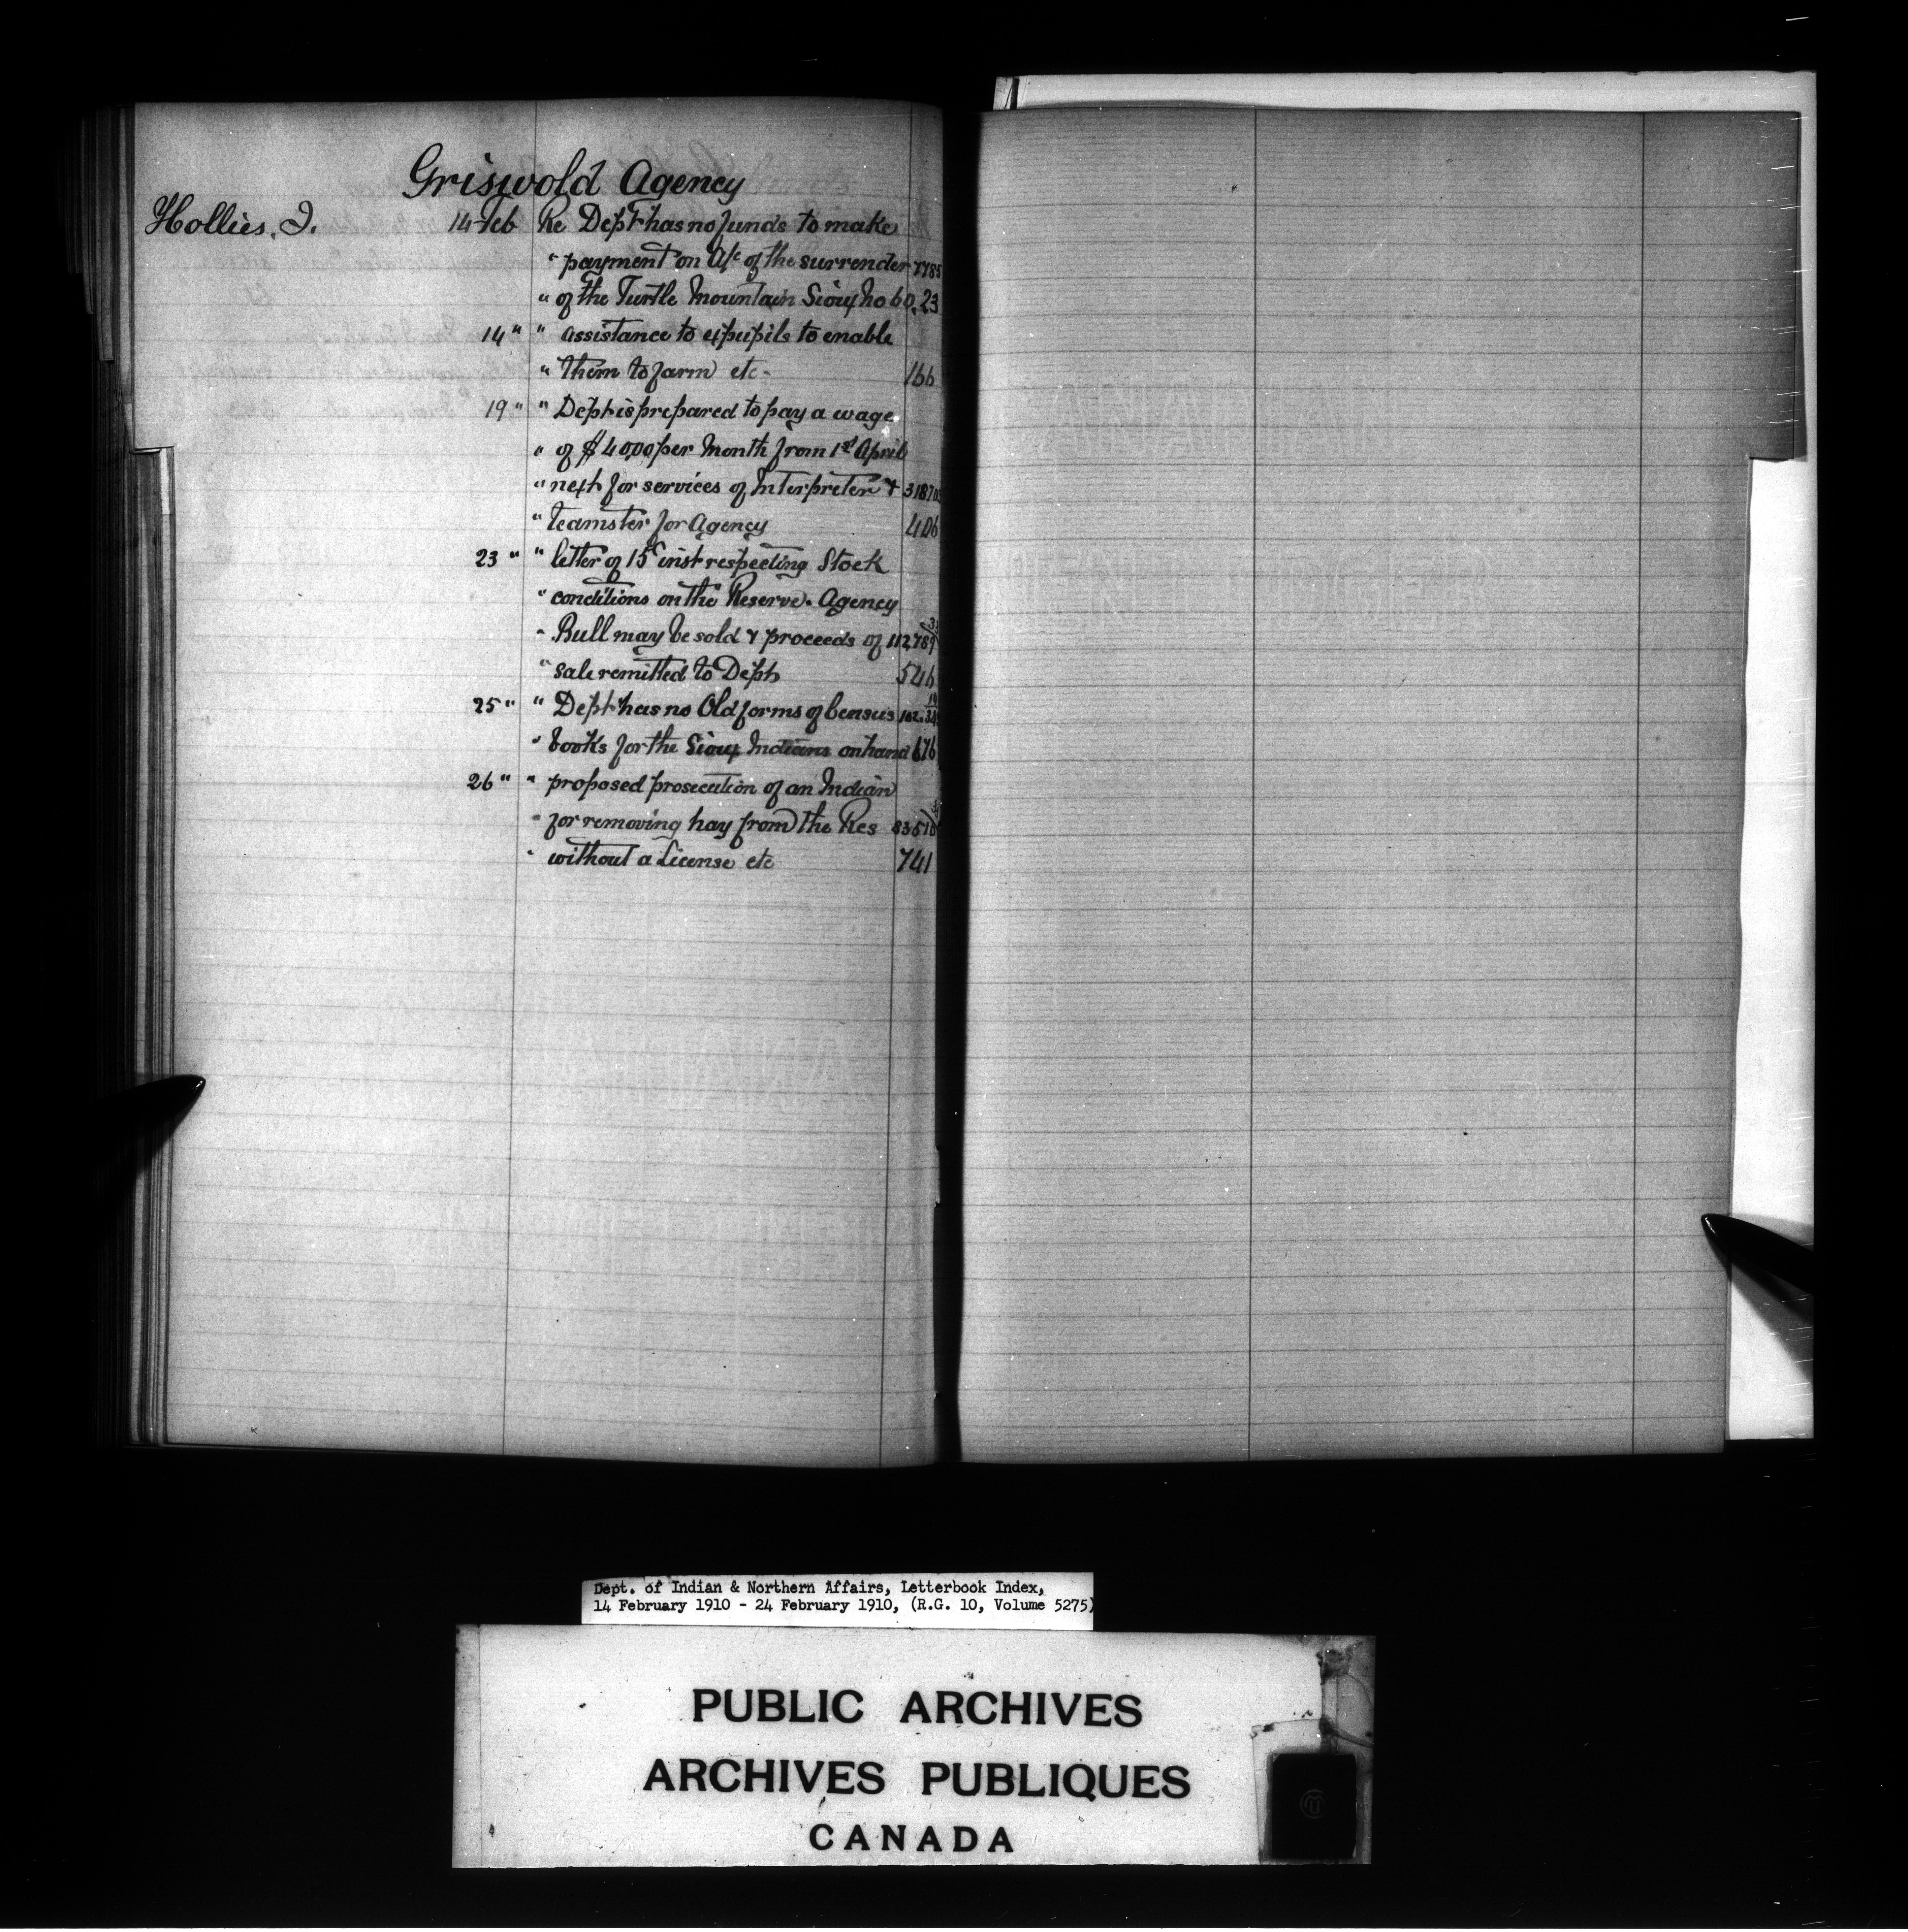 Griswold Agency
Hollies, J. 14 Feb Re Dept has no funds to make
" payment on A/c of the surrender 7785
" of the Turtle Mountain Sioux No 60. 23
14 " " assistance to expupils to enable
" them to farm etc - 166
19 " " Dept is prepared to pay a wage
" of $40.00 per Month from 1st April
" next for services of Interpreter &
" teamster for Agency 406
23 " " letter of 15 inst respecting Stock
" conditions on the Reserve. Agency
" Bull may be sold & proceeds of 112,789
" sale remitted to Dept 546
25 " " Dept has no Old forms of Census
" books for the Sioux Indians on hand 676
26 " " proposed prosecution of an Indian
" for removing hay from the Res
" without a License etc 741
Dept. of Indian & Northern Affairs, Letterbook Index,
14 February 1910 - 24 February 1910, (R.G. 10, Volume 5275)
PUBLIC ARCHIVES
ARCHIVES PUBLIQUES
CANADA